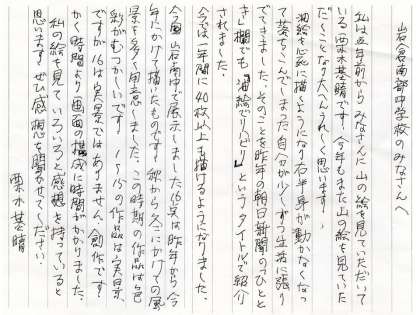 岩倉南部中学校のみなさんへ
私は五年前からみなさんに山の絵を見ていただいて
いる栗木基晴です。今年もまた山の絵を見ていた
だくことになり大へんうれしく思います。
油絵を必死に描くようになり右半身が動かなくなっ
て落ちこんでしまった自分が少しずつ生活に張り
がでてきました。そのことを昨年の朝日新聞の「ひととき」
欄でも「油絵でリハビリ」というタイトルで紹介
されました。
今では一年間に40枚以上も描けるようになりました。
今回岩南中で展示しました16点は昨年から今
年にかけて描いたものです。秋から冬にかけての風
景を多く用意しました。この時期の作品は色
彩がむつかしいです。1〜15の作品は実景
ですが16は実景ではありません。創作です。
かく時間より画面の構成に時間がかかりました。
私の絵を見ていろいろと感想を持っていると
思います。ぜひ感想を聞かせてください。
栗木基晴